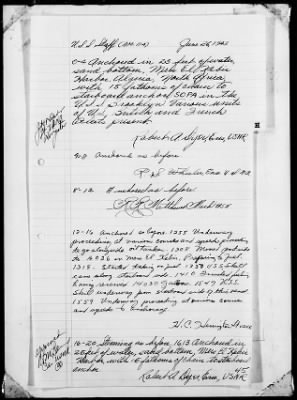 U.S.S. Staff (AM-114) June 26, 1943
0-4 Anchored in 25 feet of water,
sand bottom, Mers El Kebir
Harbor, Algeria, North Africa
with 15 fathoms of chain to
starboard anchor. SOPA in the
U.S.S. Brooklyn. Various units
of U.S., British and French
fleets present.
Robert A. Dyer, Ens, USNR
4-8 Anchored as before
8-12 Anchored as before
12-16 Anchored as before. 1255 Underway
proceeding at various courses and speeds
to go alongside oil tanker. 1308 Moored portside
to
1318. Started taking on fuel. 1359 U.S.S.
came along starboard side. 1410 finished fueling
having received 14030 gallons. 1549 U.S.S.
Skill underway from starboard side of this unit
1559 Underway proceeding at various courses
and speeds to anchorage
16-20 Steaming as before, 1613 Anchored in
25 feet of water, sand bottom, Mers El Kebir
Harbor with 15 fathoms of chain to starboard
anchor.
Robert A. Dyer, Ens, USNR
45